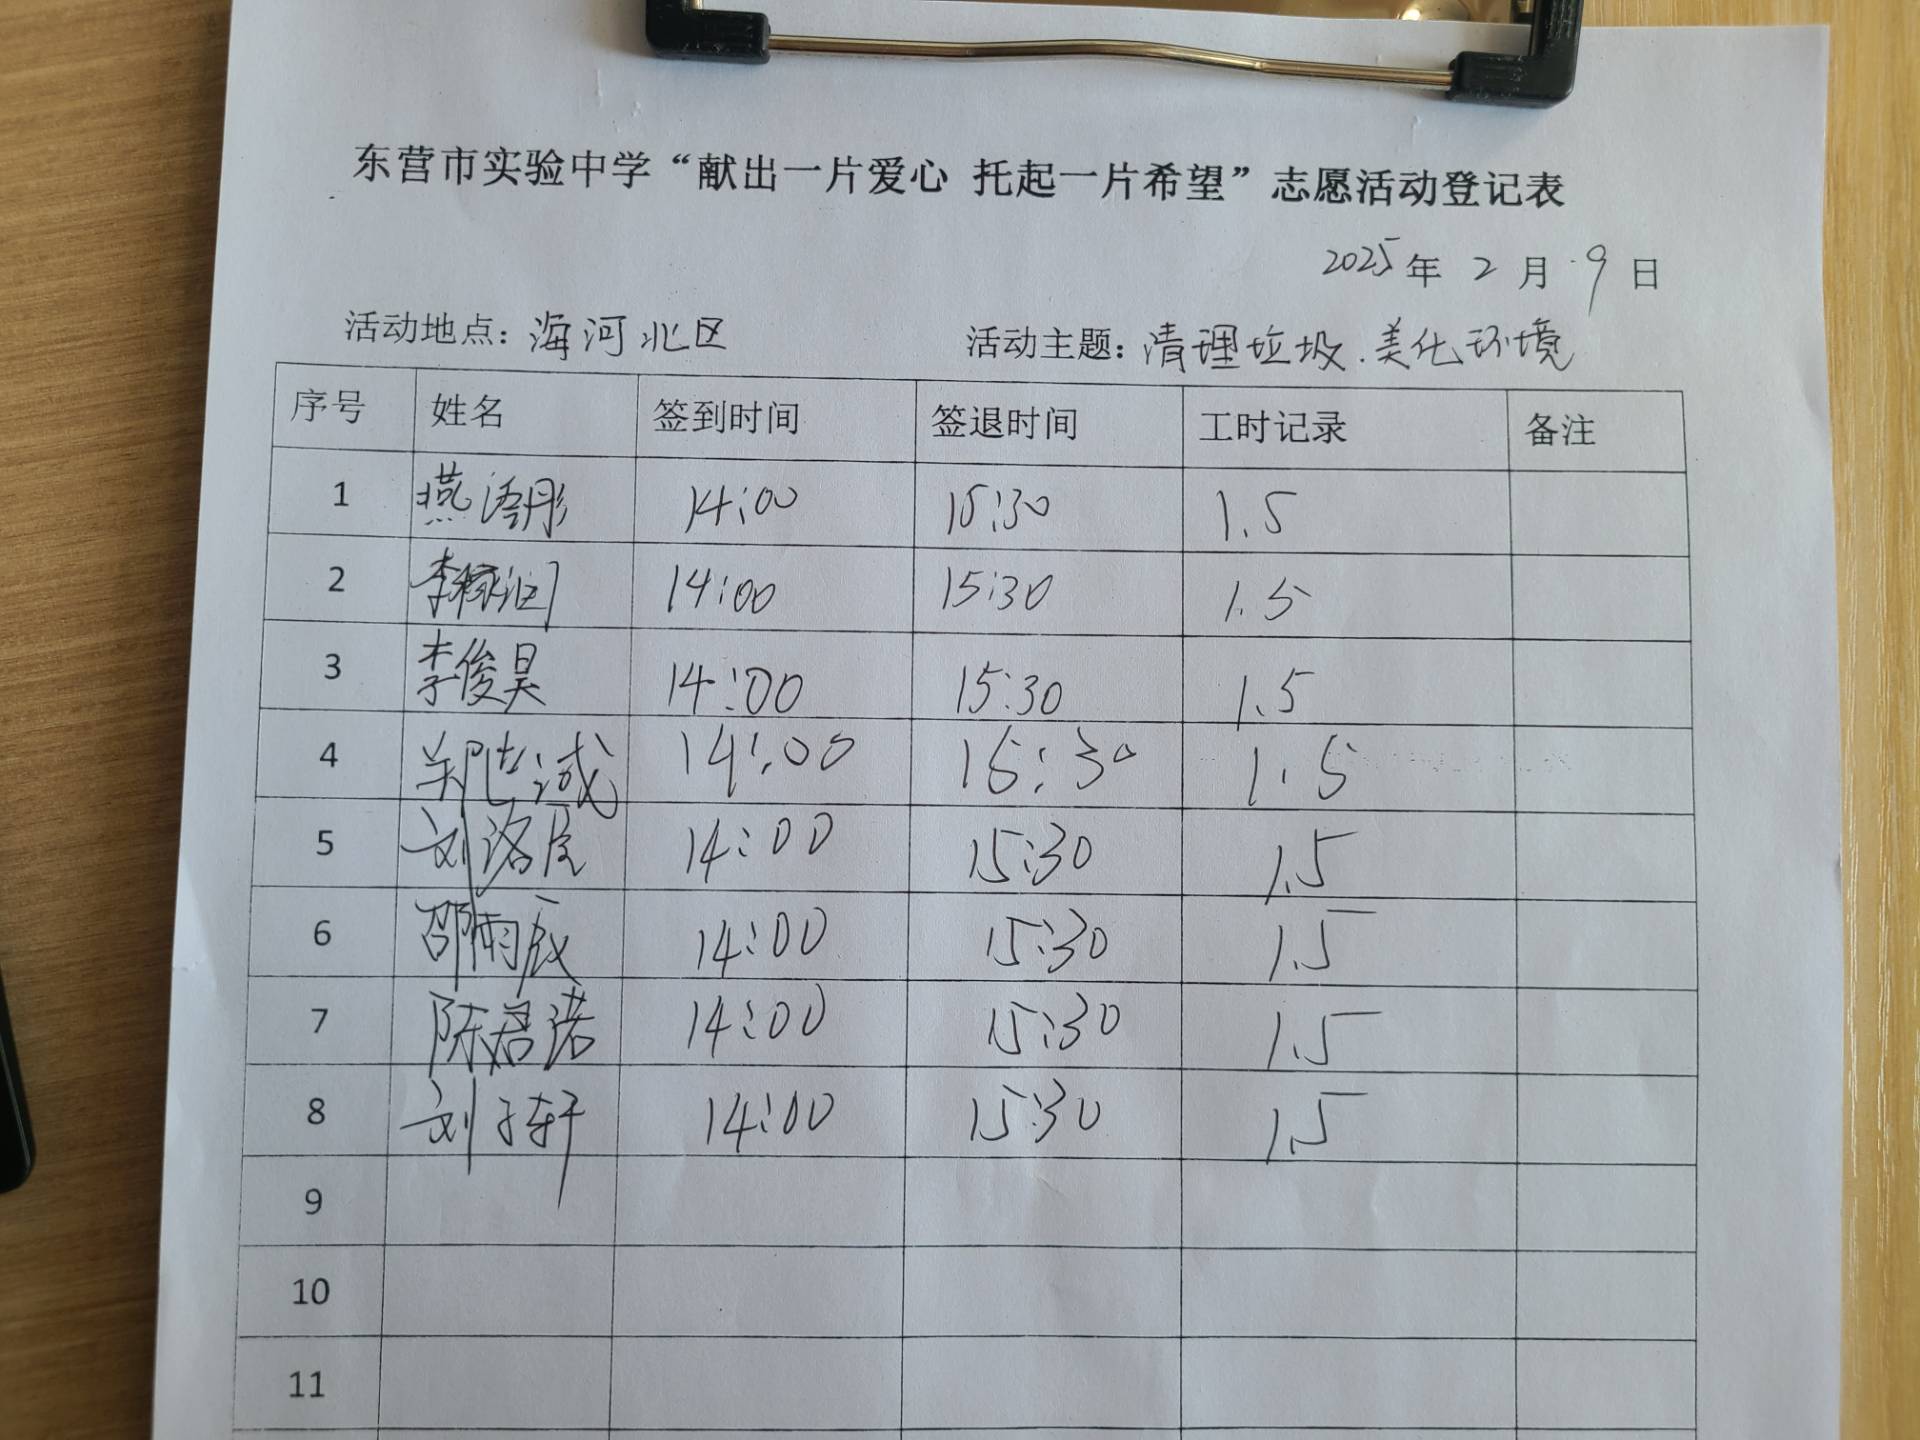 东营市实验中学“献出一片爱心 托起一片希望”志愿活动登记表
2025年 2 月 9 日
活动地点：海河北区 活动主题：清理垃圾.美化环境
序号 姓名 签到时间 签退时间 工时记录 备注
1 燕语彤 14:00 15:30 1.5
2 李 14:00 15:30 1.5
3 李俊昊 14:00 15:30 1.5
4 郑世诚 14:00 15:30 1.5
5 刘洛辰 14:00 15:30 1.5
6 邵雨辰 14:00 15:30 1.5
7 陈君诺 14:00 15:30 1.5
8 刘子轩 14:00 15:30 1.5
9
10
11